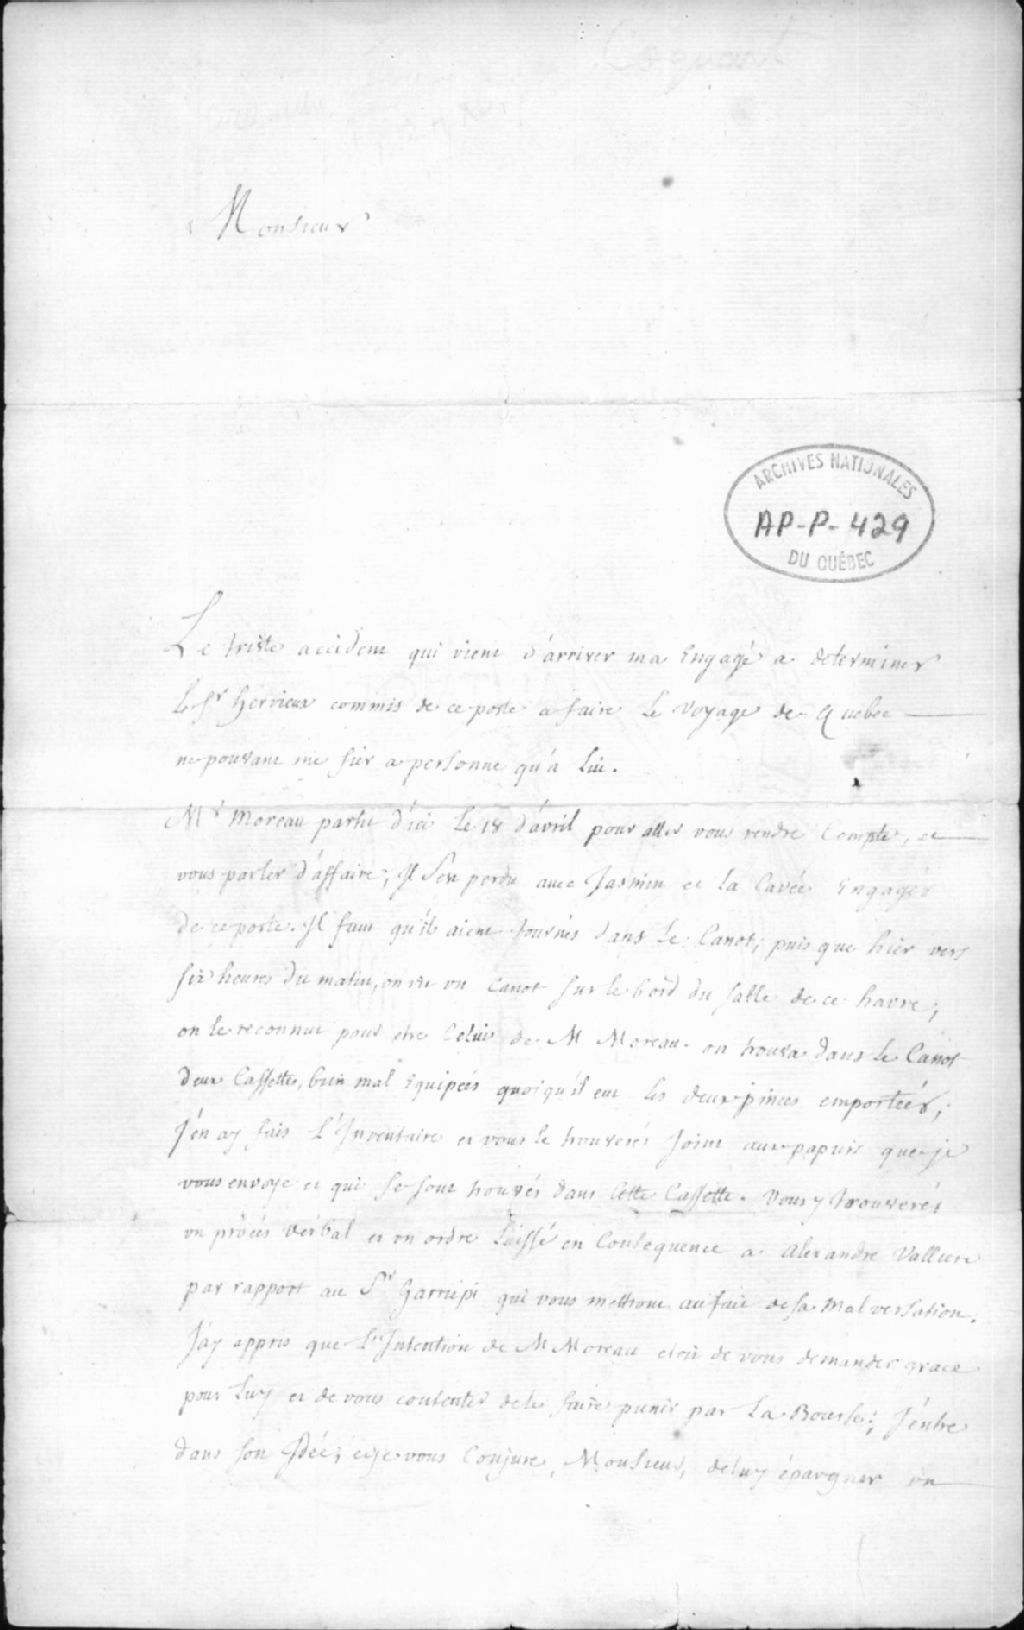 Coquart
Monsieur
ARCHIVES NATIONALES
AP-P-429
DU QUÉBEC
Le triste accident qui vient d'arriver ma Engagé a determiner
Le Sr Hervieux commis de ce poste a faire Le voyage de Quebec
ne pouvant me fier a personne qu'a Lui.
Mr Moreau partit d'ici Le 18 d'avril pour aller vous rendre Compte, et
vous parler d'affaire; Il s'est perdu avec Jasmin et La Cavée Engagés
de ce poste. Il faut qu'ils aient tournés dans Le Canot; puis que hier vers
six heures du matin, on vit un Canot sur le bord du sable de ce havre;
on le reconnut pour etre Celui de M Moreau. on trouva dans Le Canot
deux Cassettes, bien mal Equipées quoiqu'il eut Les deux pinces emportées;
J'en ay fais L'Inventaire et vous le trouverés Joint aux papiers que je
vous envoye et qui se sont trouvés dans Cette Cassette. Vous y trouverés
un procés verbal et un ordre Laissé en Consequence a Alexandre Valliere
par rapport au Sr Garnipi qui vous mettront au fait de sa malversation.
J'ay appris que L'Intention de M Moreau etoit de vous demander grace
pour Luy et de vous contenter de le faire punir par La Bourse; J'entre
dans son Idée, et je vous Conjure, Monsieur, de luy épargner un